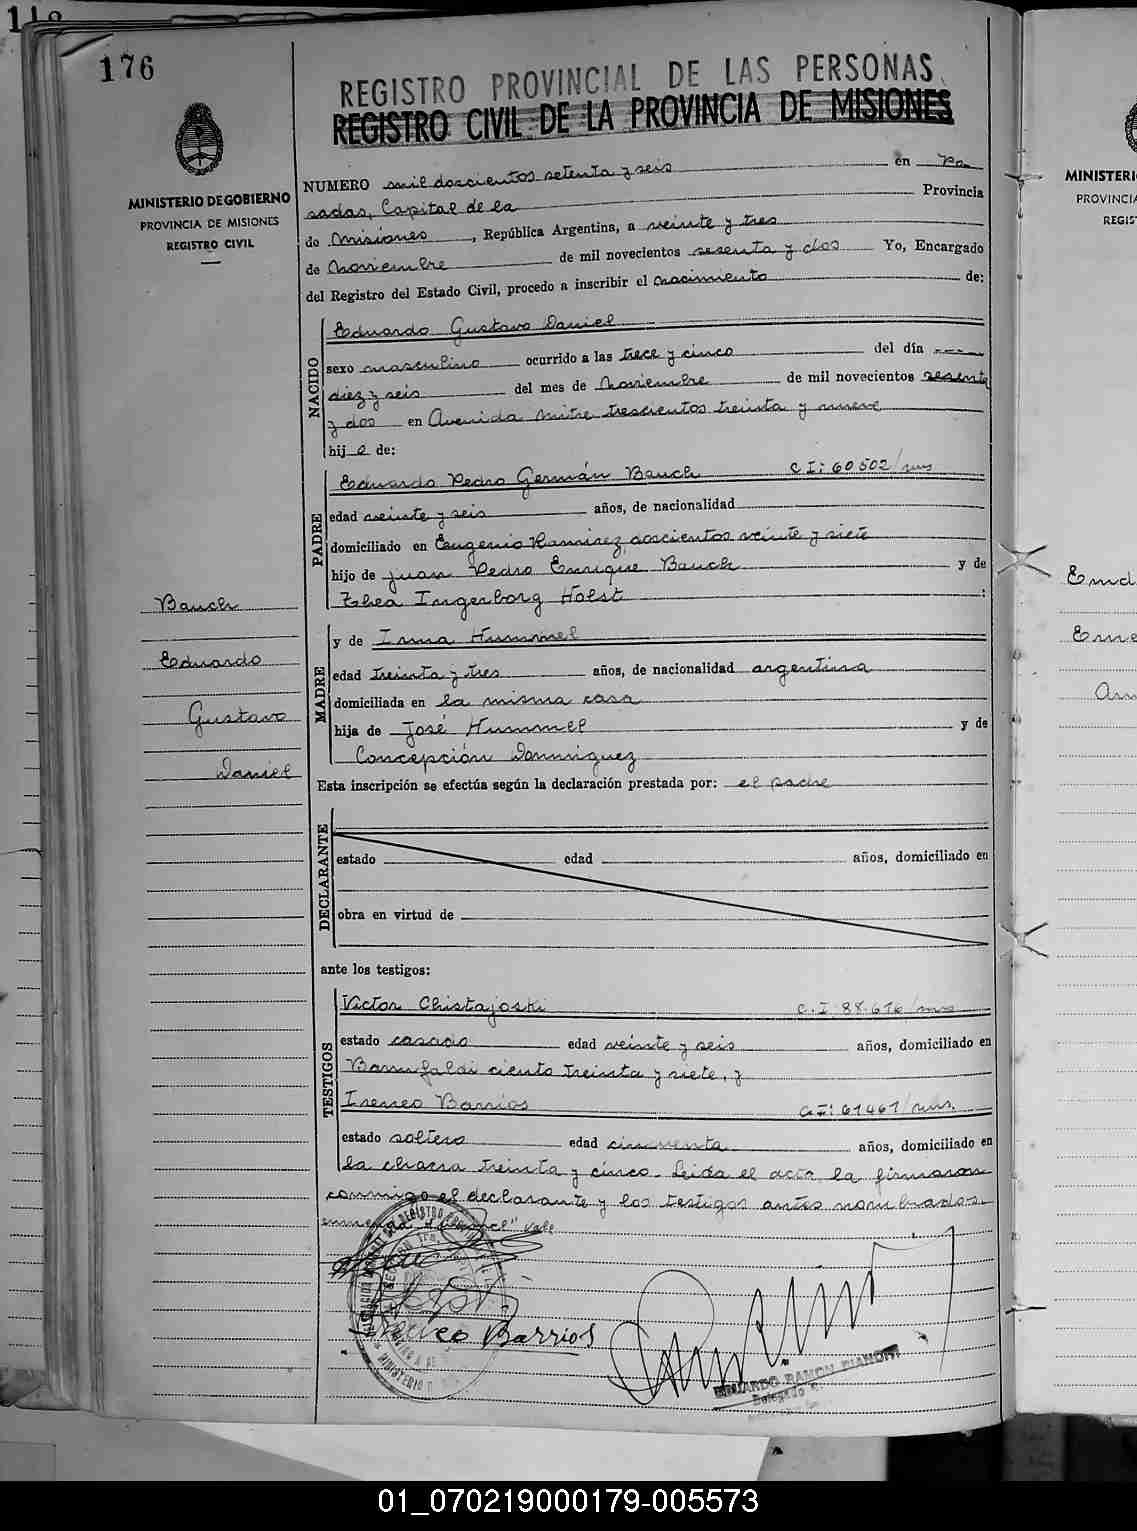 176
REGISTRO PROVINCIAL DE LAS PERSONAS
REGISTRO CIVIL DE LA PROVINCIA DE MISIONES
MINISTERIO DE GOBIERNO
PROVINCIA DE MISIONES
REGISTRO CIVIL
NUMERO mil doscientos setenta y seis en Po
sadas, Capital de la Provincia
de Misiones, República Argentina, a veinte y tres
de Noviembre de mil novecientos sesenta y dos Yo, Encargado
del Registro del Estado Civil, procedo a inscribir el nacimiento de:
NACIDO
Eduardo Gustavo Daniel
sexo masculino ocurrido a las trece y cinco del día
diez y seis del mes de Noviembre de mil novecientos sesenta
y dos en Avenida Mitre trescientos treinta y nueve
hijo de:
PADRE
Eduardo Pedro Germán Bauch C I: 60502/mns
edad veinte y seis años, de nacionalidad
domiciliado en Eugenio Ramirez doscientos veinte y siete
hijo de Juan Pedro Enrique Bauch y de
Thea Ingerborg Holst :
MADRE
y de Irma Hummel
edad treinta y tres años, de nacionalidad argentina
domiciliada en la misma casa
hija de José Hummel y de
Concepción Dominguez
Esta inscripción se efectúa según la declaración prestada por: el padre
DECLARANTE
estado edad años, domiciliado en
obra en virtud de
ante los testigos:
TESTIGOS
Victor Chistajoski C.I: 88.676/mns
estado casado edad veinte y seis años, domiciliado en
Barrufaldi ciento treinta y siete, y
Ireneo Barrios C.I: 61461/mns.
estado soltero edad cincuenta años, domiciliado en
la chacra treinta y cinco. Leida el acta la firmaron
conmigo el declarante y los testigos antes nombrados.
Vale
Barrios
EDUARDO RAMON
Delegado
Bauch
Eduardo
Gustavo
Daniel
MINISTERI
PROVINCIA
REGIST
01_070219000179-005573